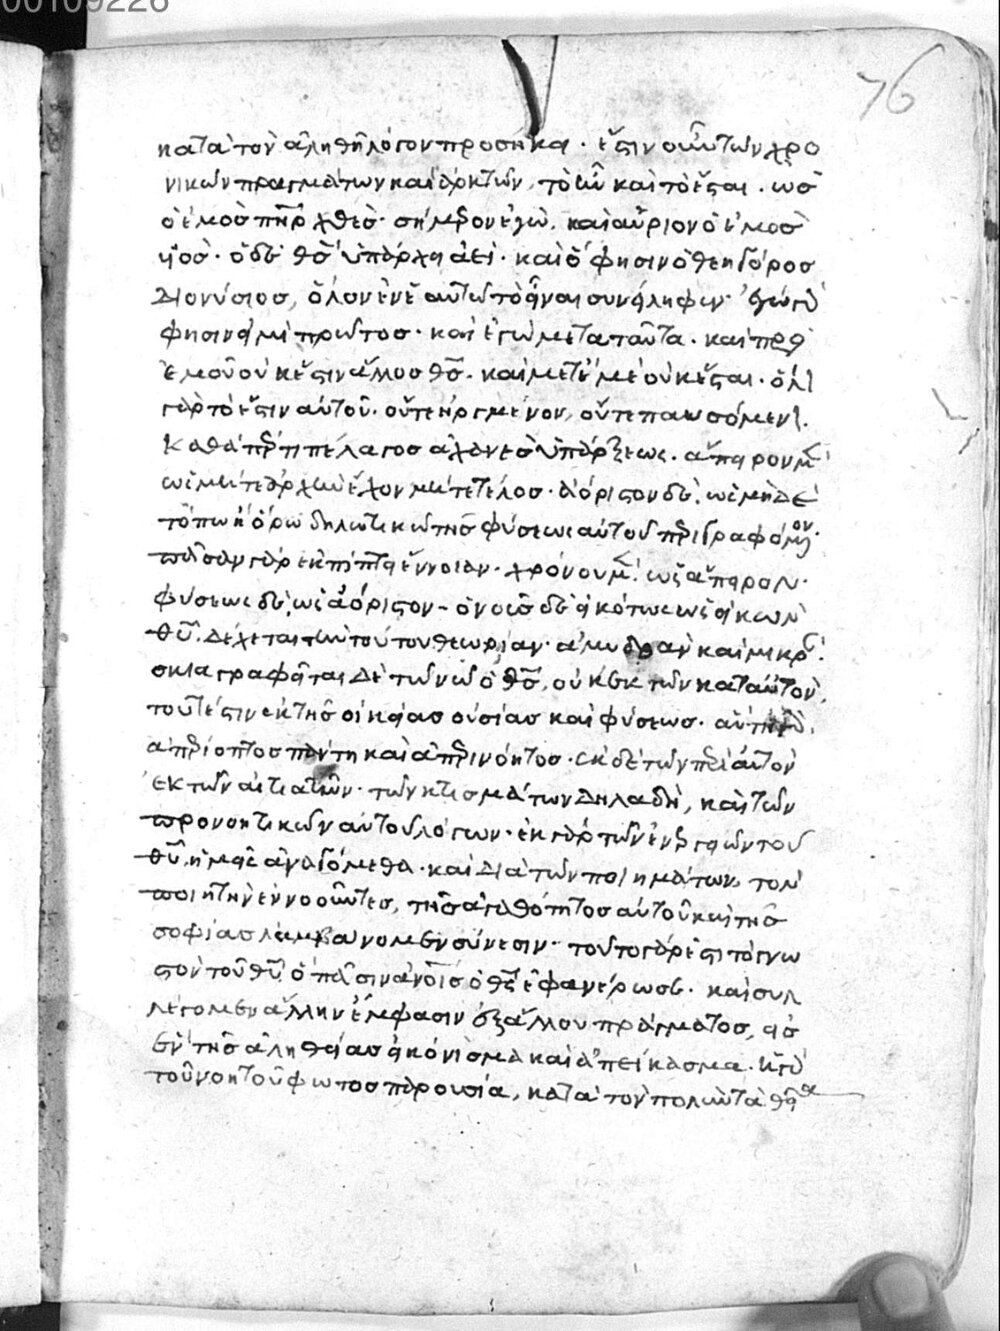 00109226
76
κατὰ τὸν ἀληθῆ λόγον προσήκει · ἔστιν οὖν τῶν χρο
νικῶν πραγμάτων καὶ ῥευστῶν, τὸ ἦν καὶ τὸ ἔσται · ὡς
ὁ ἐμὸς πηρ χθὲς · σήμερον ἐγὼ, καὶ αὔριον ὁ ἐμὸς
υἱός · ὁ δὲ θς ὑπάρχει ἀεὶ · καὶ ὅ φησιν ὁ θεηγόρος
Διονύσιος, ὅλον ἐν ἑαυτῶ τὸ εἶναι συνείληφεν · ἐγὼ γὰρ
φησιν εἰμὶ πρῶτος · καὶ ἐγὼ μετὰ ταῦτα · καὶ πρὸ
ἐμοῦ οὐκ ἔστιν ἄλλος θς · καὶ μετ' ἐμὲ οὐκ ἔσται · ὅλον
γὰρ τὸ ἔστιν αὐτοῦ · οὔτε ἠργμένον, οὔτε παυσόμενον ·
καθάπερ τι πέλαγος ἀχανὲς ὑπάρξεως · ἄπειρον μὲν
ὡς μήτε ἀρχὴν ἔχον μήτε τέλος · ἀόριστον δὲ, ὡς μηδὲ
τόπω ἢ ὅρω δηλωτικῶ τῆς φύσεως αὐτοῦ περιγραφόμενον ·
πᾶσαν γὰρ ἐκπίπτει ἔννοιαν · χρόνου μὲν, ὡς ἄπειρον ·
φύσεως δὲ, ὡς ἀόριστον · ὁ νοῦς δὲ εἰκότως ὡς εἰκὼν
θυ δέχεται τὴν τούτου θεωρίαν · ἀμυδρὰν καὶ μικράν ·
σκιαγραφεῖται δὲ τῶ νῶ ὁ θς, οὐκ ἐκ τῶν κατ' αὐτὸν,
τουτέστιν ἐκ τῆς οἰκείας οὐσίας καὶ φύσεως ·
ἀπερίοπτος πάντη καὶ ἀπερινόητος · ἐκ δὲ τῶν περὶ αὐτὸν
ἐκ τῶν αἰτιατῶν · τῶν κτισμάτων δηλαδὴ, καὶ τῶν
προνοητικῶν αὐτοῦ λόγων · ἐκ γὰρ τῶν ἐνεργειῶν τοῦ
θυ ἡμεῖς ἀναγόμεθα · καὶ διὰ τῶν ποιημάτων, τὸν
ποιητὴν ἐννοοῦντες, τῆς ἀγαθότητος αὐτοῦ καὶ τῆς
σοφίας λαμβάνομεν σύνεσιν · τοῦτο γάρ ἐστι τὸ γνω
στὸν τοῦ θυ, ὃ πᾶσιν ἀνοις ὁ θς ἐφανέρωσε · καὶ συλ
λέγομεν ἄλλην ἔμφασιν ἐξ ἄλλου πράγματος, εἰς
ἓν τῆς ἀληθείας εἰκόνισμα καὶ ἀπείκασμα ·
τοῦ νοητοῦ φωτὸς παρουσία, κατὰ τὸν πολὺν τὰ θεῖα